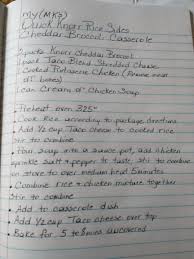 My (MK's)
Quick Knorr Rice Sides
Cheddar Broccoli Casserole
2 packs Knorr Cheddar Broccoli
1 pack Taco Blend Shredded Cheese
Cooked Rotisserie Chicken (
meat
of bones)
1 can Cream of Chicken Soup
- Preheat oven 325°
- Cook Rice according to package directions
- Add ½ cup Taco cheese to cooked rice
Stir to combine
- Pour soup into a sauce pot, add chicken
sprinkle salt + pepper to taste, stir to combine
on stove to over medium heat 5 minutes
- Combine rice + chicken mixture together
Stir to combine
- Add to casserole dish
- Add ½ cup Taco cheese over top
- Bake for 5 minutes uncovered